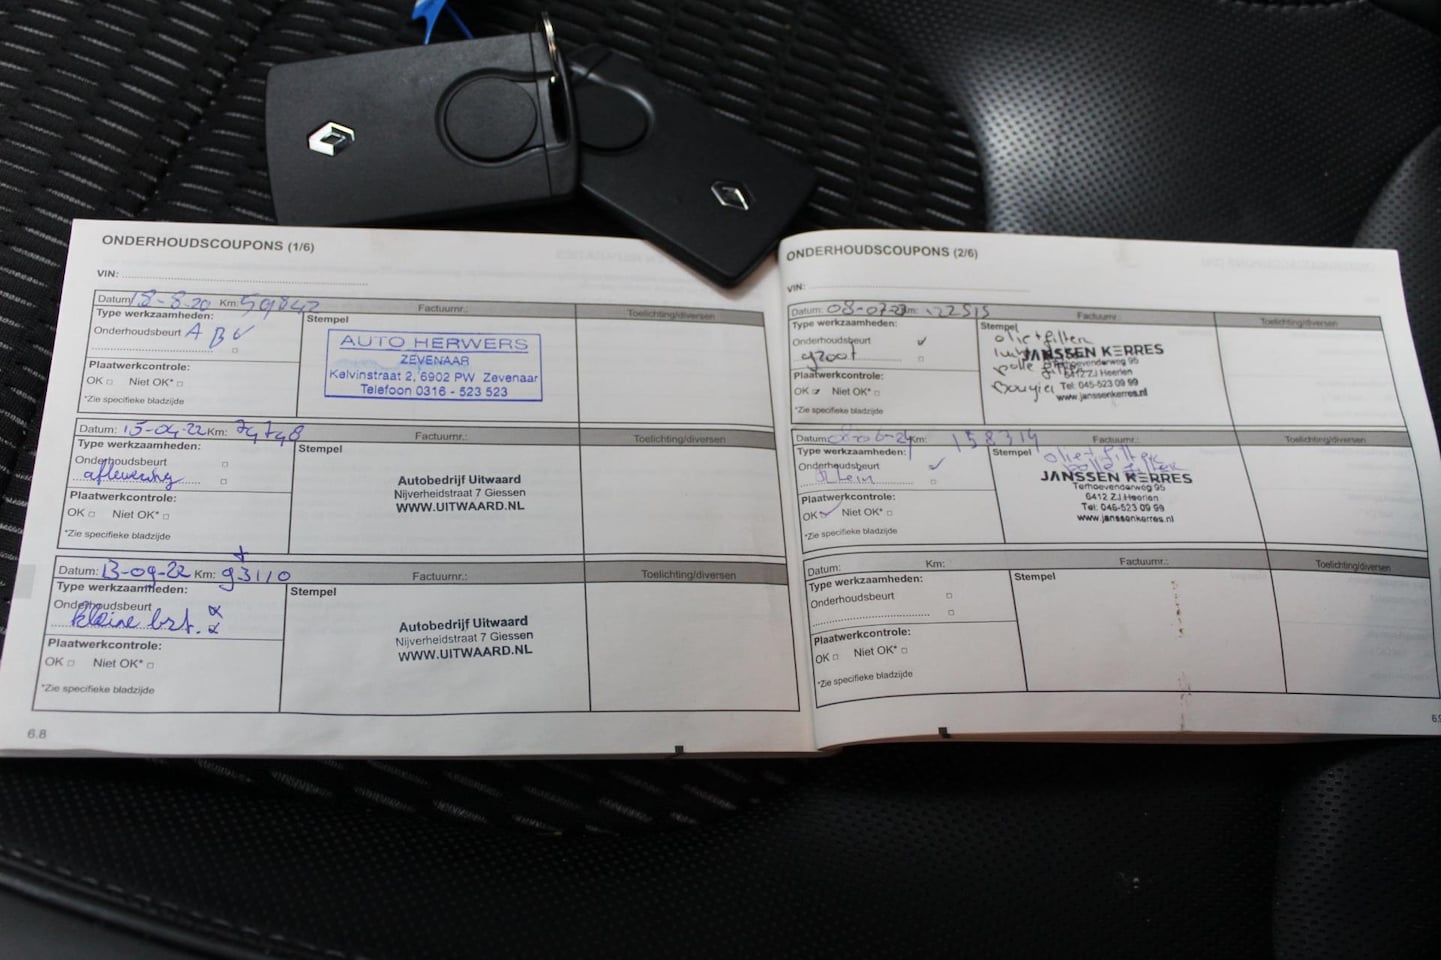 ONDERHOUDSCOUPONS (1/6)
VIN:
Datum: 18-8-20 Km: 59842 Factuurnr.: Toelichting/diversen
Type werkzaamheden:
Stempel
Onderhoudsbeurt A B
AUTO HERWERS
ZEVENAAR
Kelvinstraat 2, 6902 PW Zevenaar
Telefoon 0316 - 523 523
Plaatwerkcontrole:
OK Niet OK*
*Zie specifieke bladzijde
Datum: 15-04-22 Km: 74748 Factuurnr.: Toelichting/diversen
Type werkzaamheden:
Stempel
Onderhoudsbeurt
aflevering
Autobedrijf Uitwaard
Nijverheidstraat 7 Giessen
WWW.UITWAARD.NL
Plaatwerkcontrole:
OK Niet OK*
*Zie specifieke bladzijde
Datum: 13-09-22 Km: 93110 Factuurnr.: Toelichting/diversen
Type werkzaamheden:
Stempel
Onderhoudsbeurt
kleine brt.
Autobedrijf Uitwaard
Nijverheidstraat 7 Giessen
WWW.UITWAARD.NL
Plaatwerkcontrole:
OK Niet OK*
*Zie specifieke bladzijde
6.8
ONDERHOUDSCOUPONS (2/6)
VIN:
Datum: Km: Factuurnr.: Toelichting/diversen
Type werkzaamheden:
Stempel
Onderhoudsbeurt
groot
olie+filter
JANSSEN KERRES
Terhoevenderweg 95
6412 ZJ Heerlen
Tel: 045-523 09 99
www.janssenkerres.nl
Bougie
Plaatwerkcontrole:
OK Niet OK*
*Zie specifieke bladzijde
Datum: Km: 158314 Factuurnr.: Toelichting/diversen
Type werkzaamheden:
Stempel
Onderhoudsbeurt
klein
olie+filter
JANSSEN KERRES
Terhoevenderweg 95
6412 ZJ Heerlen
Tel: 045-523 09 99
www.janssenkerres.nl
Plaatwerkcontrole:
OK Niet OK*
*Zie specifieke bladzijde
Datum: Km: Factuurnr.: Toelichting/diversen
Type werkzaamheden:
Stempel
Onderhoudsbeurt
Plaatwerkcontrole:
OK Niet OK*
*Zie specifieke bladzijde